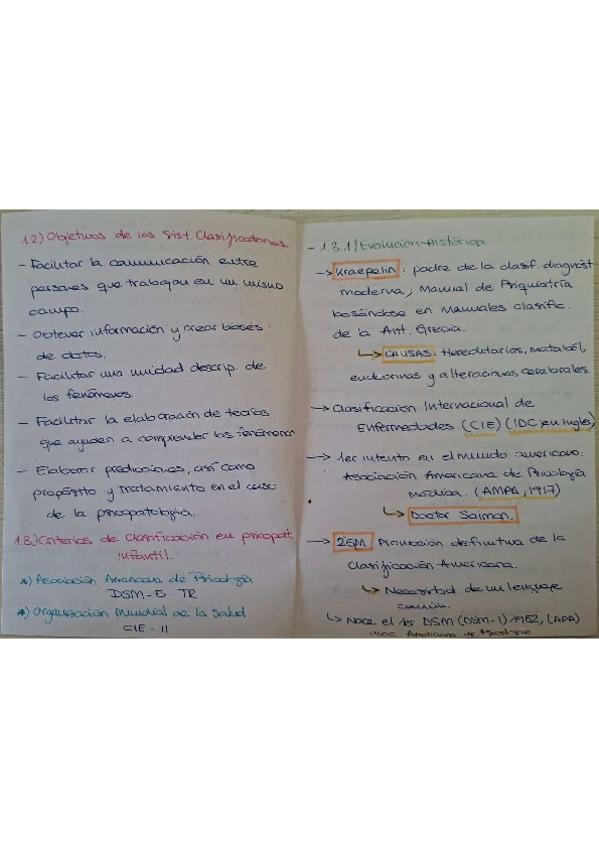 1.2) Objetivos de los Sist. Clasificadores.
- Facilitar la comunicación entre
personas que trabajan en un mismo
campo.
- Obtener información y crear bases
de datos.
- Facilitar una unidad descrip. de
los fenómenos.
- Facilitar la elaboración de teorías
que ayuden a comprender los fenómenos
- Elaborar predicciones, así como
propósito y tratamiento en el caso
de la psicopatología.
1.3) Criterios de Clasificación en psicopat.
infantil.
*) Asociación Americana de Psicología
DSM-5 TR
*) Organización Mundial de la Salud
CIE - 11
- 1.3.1) Evolución Histórica.
→ Kraepelin: padre de la clasif. diagnóst
moderna; Manual de Psiquiatría
basándose en manuales clasific.
de la Ant. Grecia.
↳ CAUSAS: Hereditarias, metaból,
endocrinas y alteraciones cerebrales
→ Clasificación Internacional de
Enfermedades (CIE) (IDC en inglés)
→ 1er intento en el mundo americano:
Asociación Americana de Psicología
Médica. (AMPA, 1917)
↳ Doctor Salmon.
→ 2GM Promoción definitiva de la
Clasificación Americana.
↳ Necesidad de un lenguaje
común.
↳ Nace el 1er DSM (DSM-I) 1952, (APA)
Asoc. Americana de